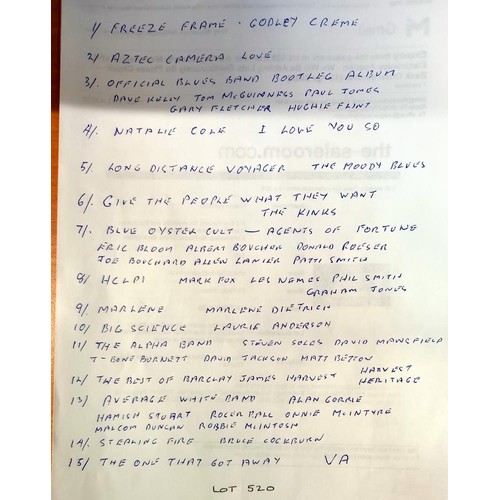 1/ FREEZE FRAME · GODLEY CREME
2/ AZTEC CAMERA LOVE
3/. OFFICIAL BLUES BAND BOOTLEG ALBUM
DAVE KELLY TOM McGUINNESS PAUL JONES
GARY FLETCHER HUGHIE FLINT
4/. NATALIE COLE I LOVE YOU SO
5/. LONG DISTANCE VOYAGER THE MOODY BLUES
6/. GIVE THE PEOPLE WHAT THEY WANT
THE KINKS
7/. BLUE OYSTER CULT — AGENTS OF FORTUNE
ERIC BLOOM ALBERT BOUCHER DONALD ROESER
JOE BOUCHARD ALLEN LANIER PATTI SMITH
8/ HELP! MACK FOX LES NEMES PHIL SMITH
GRAHAM JONES
9/ MARLENE MARLENE DIETRICH
10/ BIG SCIENCE LAURIE ANDERSON
11/ THE ALPHA BAND STEVEN SOLES DAVID MANSFIELD
T-BONE BURNETT DAVID JACKSON MATT BETTON
12/ THE BEST OF BARCLAY JAMES HARVEST HARVEST
HERITAGE
13/ AVERAGE WHITE BAND ALAN GORRIE
HAMISH STUART ROGER BALL ONNIE McINTYRE
MALCOM DUNCAN ROBBIE McINTOSH
14/. STEALING FIRE BRUCE COCKBURN
15/. THE ONE THAT GOT AWAY VA
LOT 520
the-saleroom.com